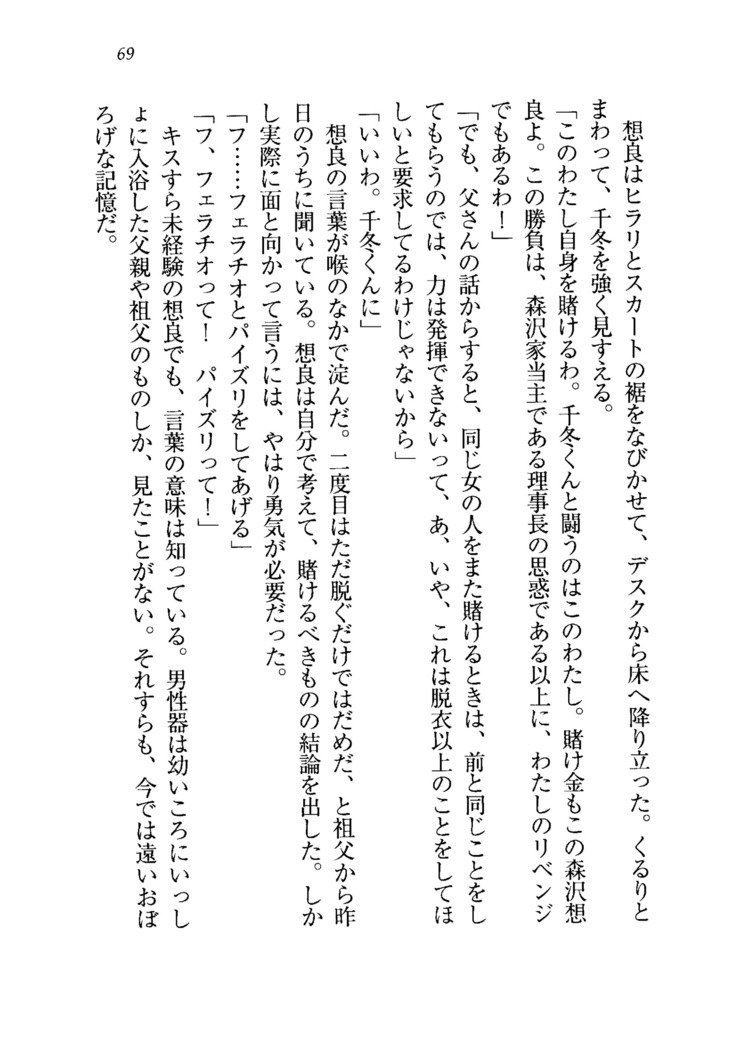 69
想良はヒラリとスカートの裾をなびかせて、デスクから床へ降り立った。くるりと
まわって、千冬を強く見すえる。
「このわたし自身を賭けるわ。千冬くんと闘うのはこのわたし。賭け金もこの森沢想
良よ。この勝負は、森沢家当主である理事長の思惑である以上に、わたしのリベンジ
でもあるわ！」
「でも、父さんの話からすると、同じ女の人をまた賭けるときは、前と同じことをし
てもらうのでは、力は発揮できないって、あ、いや、これは脱衣以上のことをしてほ
しいと要求してるわけじゃないから」
「いいわ。千冬くんに」
想良の言葉が喉のなかで淀んだ。二度目はただ脱ぐだけではだめだ、と祖父から昨
日のうちに聞いている。想良は自分で考えて、賭けるべきものの結論を出した。しか
し実際に面と向かって言うには、やはり勇気が必要だった。
「フ……フェラチオとパイズリをしてあげる」
「フ、フェラチオって！　パイズリって！」
キスすら未経験の想良でも、言葉の意味は知っている。男性器は幼いころにいっし
ょに入浴した父親や祖父のものしか、見たことがない。それすらも、今では遠いおぼ
ろげな記憶だ。